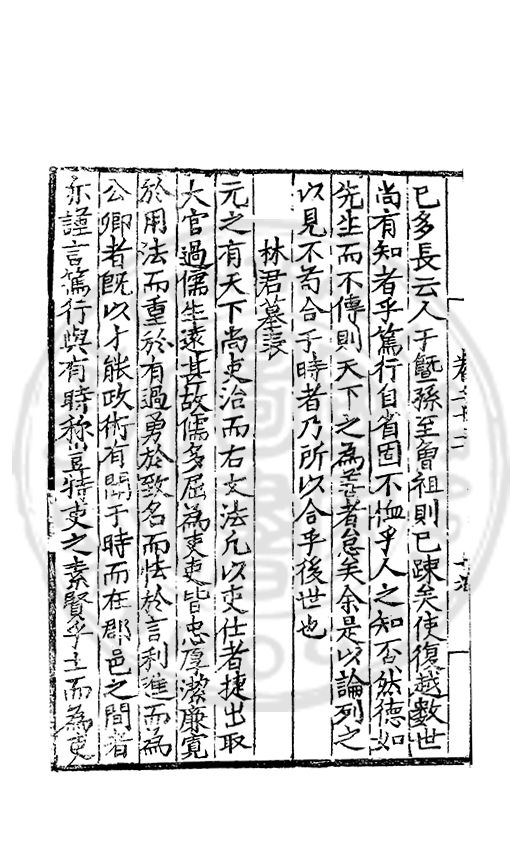 已多長云人于曁孫至曾祖則已踈矣使復越數世
尚有知者乎篤行自省固不恤乎人之知否然德如
先生而不傳則天下之為善者怠矣余是以論列之
以見不苟合于時者乃所以合乎後世也
林君墓表
元之有天下尚吏治而右文法凡以吏仕者捷出取
大官過儒生遠甚故儒多屈為吏吏皆忠厚潔廉寛
於用法而重於有過勇於致名而怯於言利進而為
公卿者旣以才能政術有聞于時而在郡邑之間者
亦謹言篤行與有時称豈特吏之素賢乎士而為吏